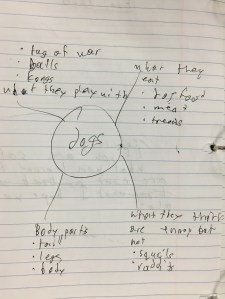 • tug of war
• balls
• kongs
what they play with
what they
eat
• dog food
• meat
• treats
dogs
Body parts
• tail
• legs
• body
what they think
are
not
• squirls